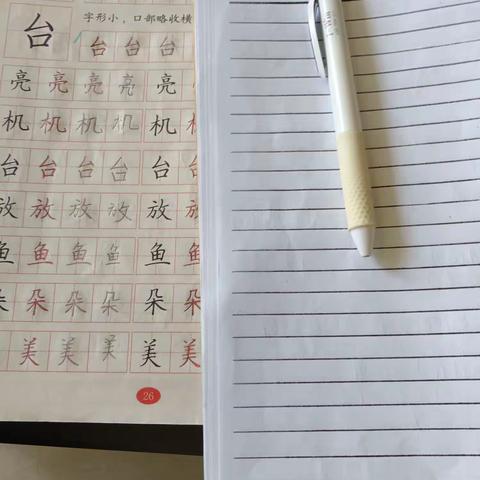 台 字形小，口部略收横
台 台 台
亮 亮 亮 亮 亮
机 机 机 机 机 机
台 台 台 台 台 台
放 放 放 放 放 放
鱼 鱼 鱼 鱼 鱼 鱼
朵 朵 朵 朵 朵 朵
美 美 美 美 美
26